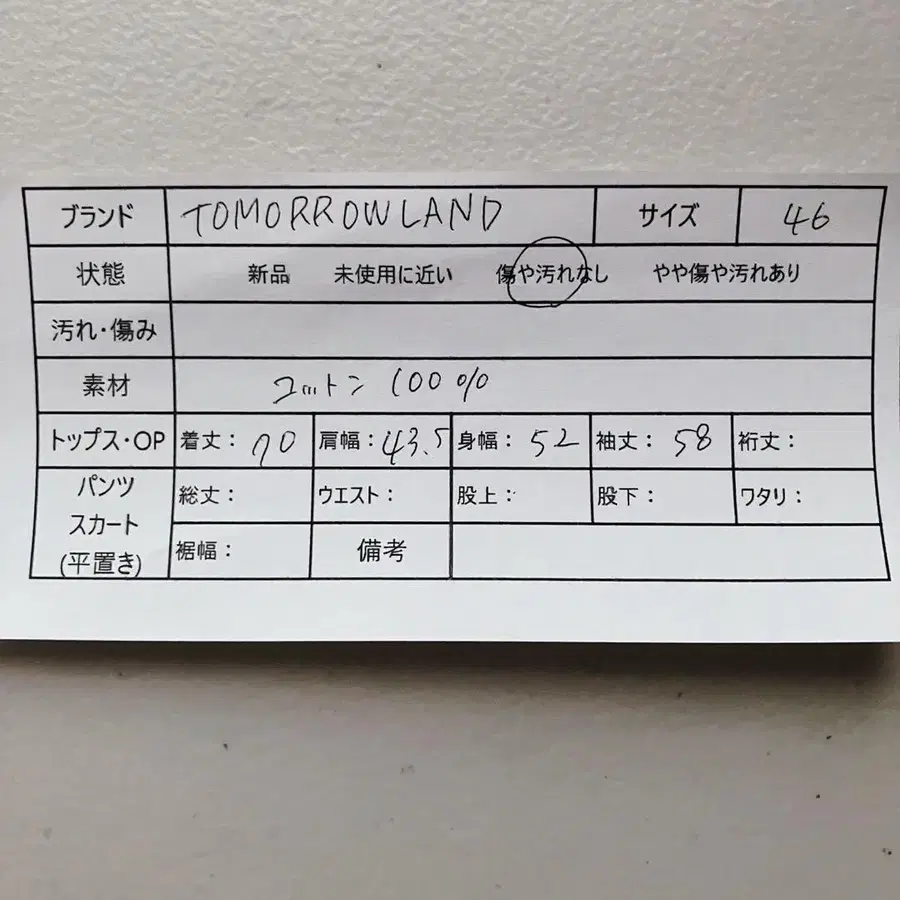 ブランド TOMORROWLAND サイズ 46
状態 新品 未使用に近い 傷や汚れなし やや傷や汚れあり
汚れ・傷み
素材 コットン 100%
トップス・OP 着丈: 70 肩幅: 43.5 身幅: 52 袖丈: 58 裄丈:
パンツ
スカート
(平置き)
総丈: ウエスト: 股上: 股下: ワタリ:
裾幅: 備考